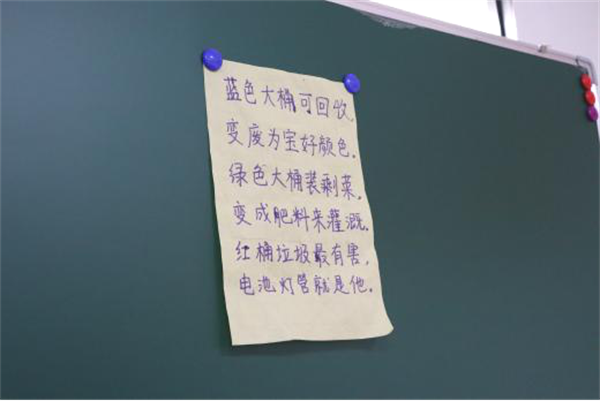 蓝色大桶可回收,
变废为宝好颜色.
绿色大桶装剩菜,
变成肥料来灌溉.
红桶垃圾最有害,
电池灯管就是他.